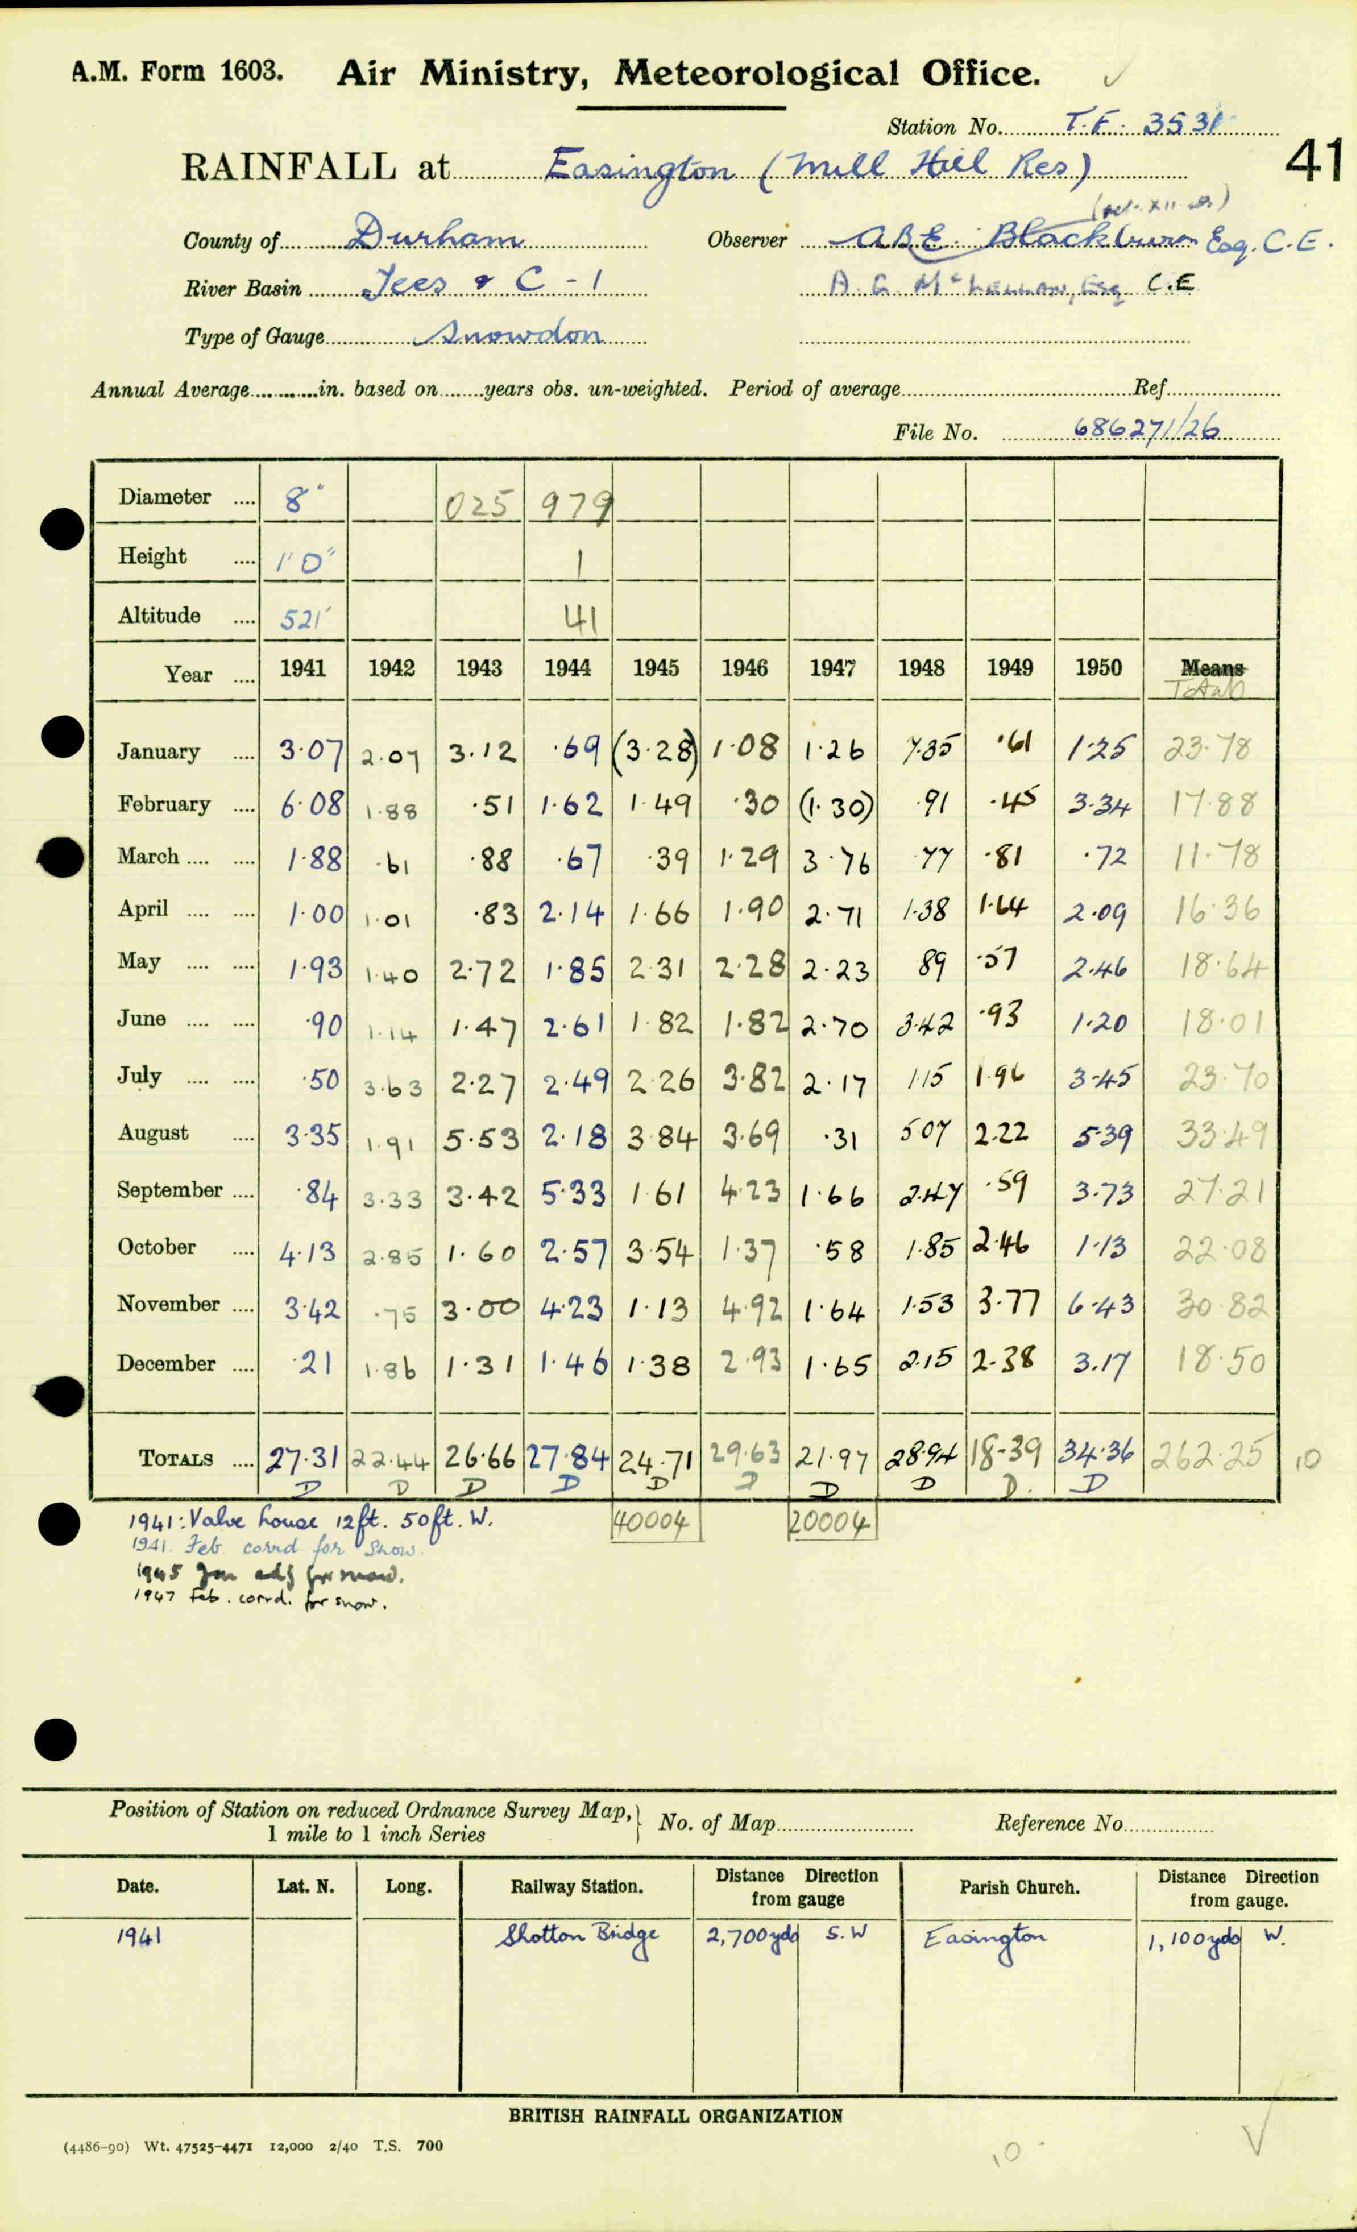 A.M. Form 1603. Air Ministry, Meteorological Office.
Station No. T.F. 3531
RAINFALL at Easington (Mill Hill Res) 41
County of Durham Observer A.B.E. Blackburn Esq. C.E.
River Basin Tees & C - 1 A. G. McLELLAN, Esq C.E
Type of Gauge Snowdon
Annual Average in. based on years obs. un-weighted. Period of average Ref.
File No. 686271/26
Diameter 8" 025 979
Height 1'0" 1
Altitude 521' 41
Year 1941 1942 1943 1944 1945 1946 1947 1948 1949 1950 Means Total
January 3.07 2.07 3.12 .69 (3.28) 1.08 1.26 7.35 .61 1.25 23.78
February 6.08 1.88 .51 1.62 1.49 .30 (1.30) .91 .45 3.34 17.88
March 1.88 .61 .88 .67 .39 1.29 3.76 .77 .81 .72 11.78
April 1.00 1.01 .83 2.14 1.66 1.90 2.71 1.38 1.64 2.09 16.36
May 1.93 1.40 2.72 1.85 2.31 2.28 2.23 89 .57 2.46 18.64
June .90 1.14 1.47 2.61 1.82 1.82 2.70 3.42 .93 1.20 18.01
July .50 3.63 2.27 2.49 2.26 3.82 2.17 1.15 1.96 3.45 23.70
August 3.35 1.91 5.53 2.18 3.84 3.69 .31 5.07 2.22 5.39 33.49
September .84 3.33 3.42 5.33 1.61 4.23 1.66 2.47 .59 3.73 27.21
October 4.13 2.85 1.60 2.57 3.54 1.37 .58 1.85 2.46 1.13 22.08
November 3.42 .75 3.00 4.23 1.13 4.92 1.64 1.53 3.77 6.43 30.82
December .21 1.86 1.31 1.46 1.38 2.93 1.65 2.15 2.38 3.17 18.50
TOTALS 27.31 22.44 26.66 27.84 24.71 29.63 21.97 28.94 18.39 34.36 262.25 10
D D D D D D D D D. D
40004 20004
1941: Valve house 12ft. 50ft. W.
1941. Feb. corrd for Snow.
1945 Jan adj for snow.
1947 Feb. corrd. for snow.
Position of Station on reduced Ordnance Survey Map, No. of Map Reference No.
1 mile to 1 inch Series
Date. Lat. N. Long. Railway Station. Distance Direction from gauge Parish Church. Distance Direction from gauge.
1941 Shotton Bridge 2,700yds S.W Easington 1,100yds W.
BRITISH RAINFALL ORGANIZATION
(4486-90) Wt. 47525-4471 12,000 2/40 T.S. 700
10